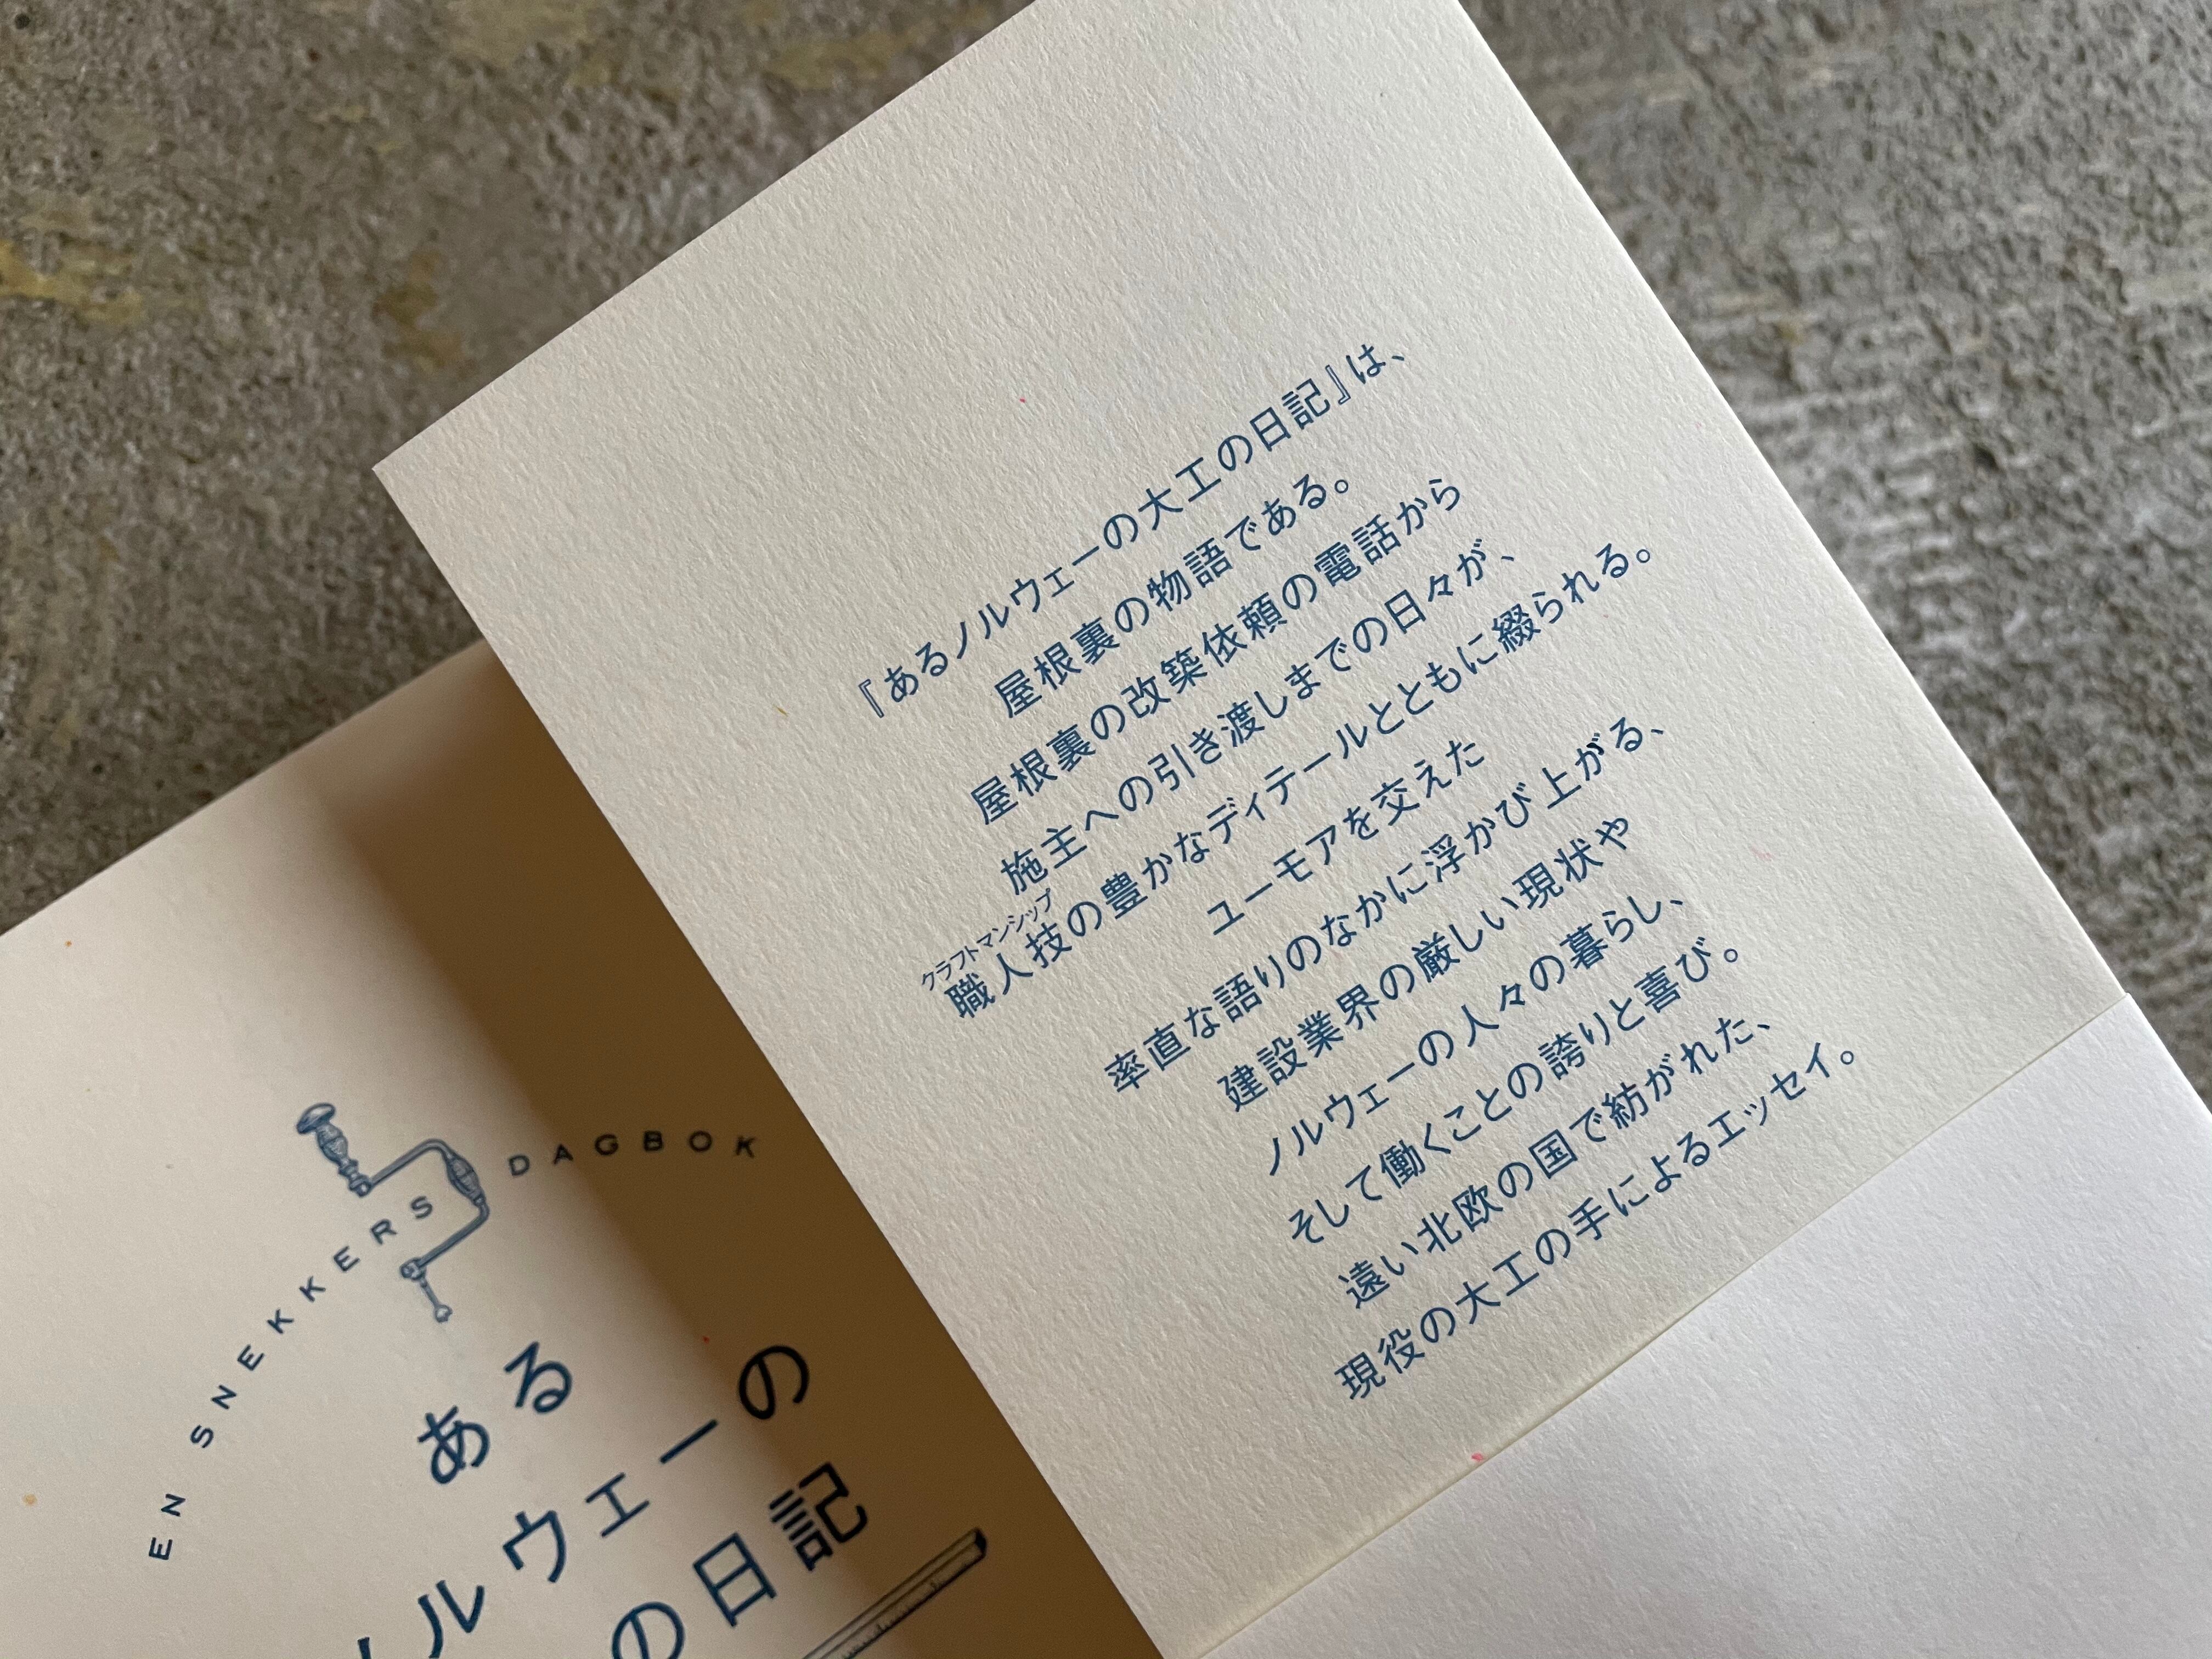 『あるノルウェーの大工の日記』は、
屋根裏の物語である。
屋根裏の改築依頼の電話から
施主への引き渡しまでの日々が、
クラフトマンシップ
職人技の豊かなディテールとともに綴られる。
ユーモアを交えた
率直な語りのなかに浮かび上がる、
建設業界の厳しい現状や
ノルウェーの人々の暮らし、
そして働くことの誇りと喜び。
遠い北欧の国で紡がれた、
現役の大工の手によるエッセイ。
EN SNEKKERS DAGBOK
ある
ノルウェーの
の日記